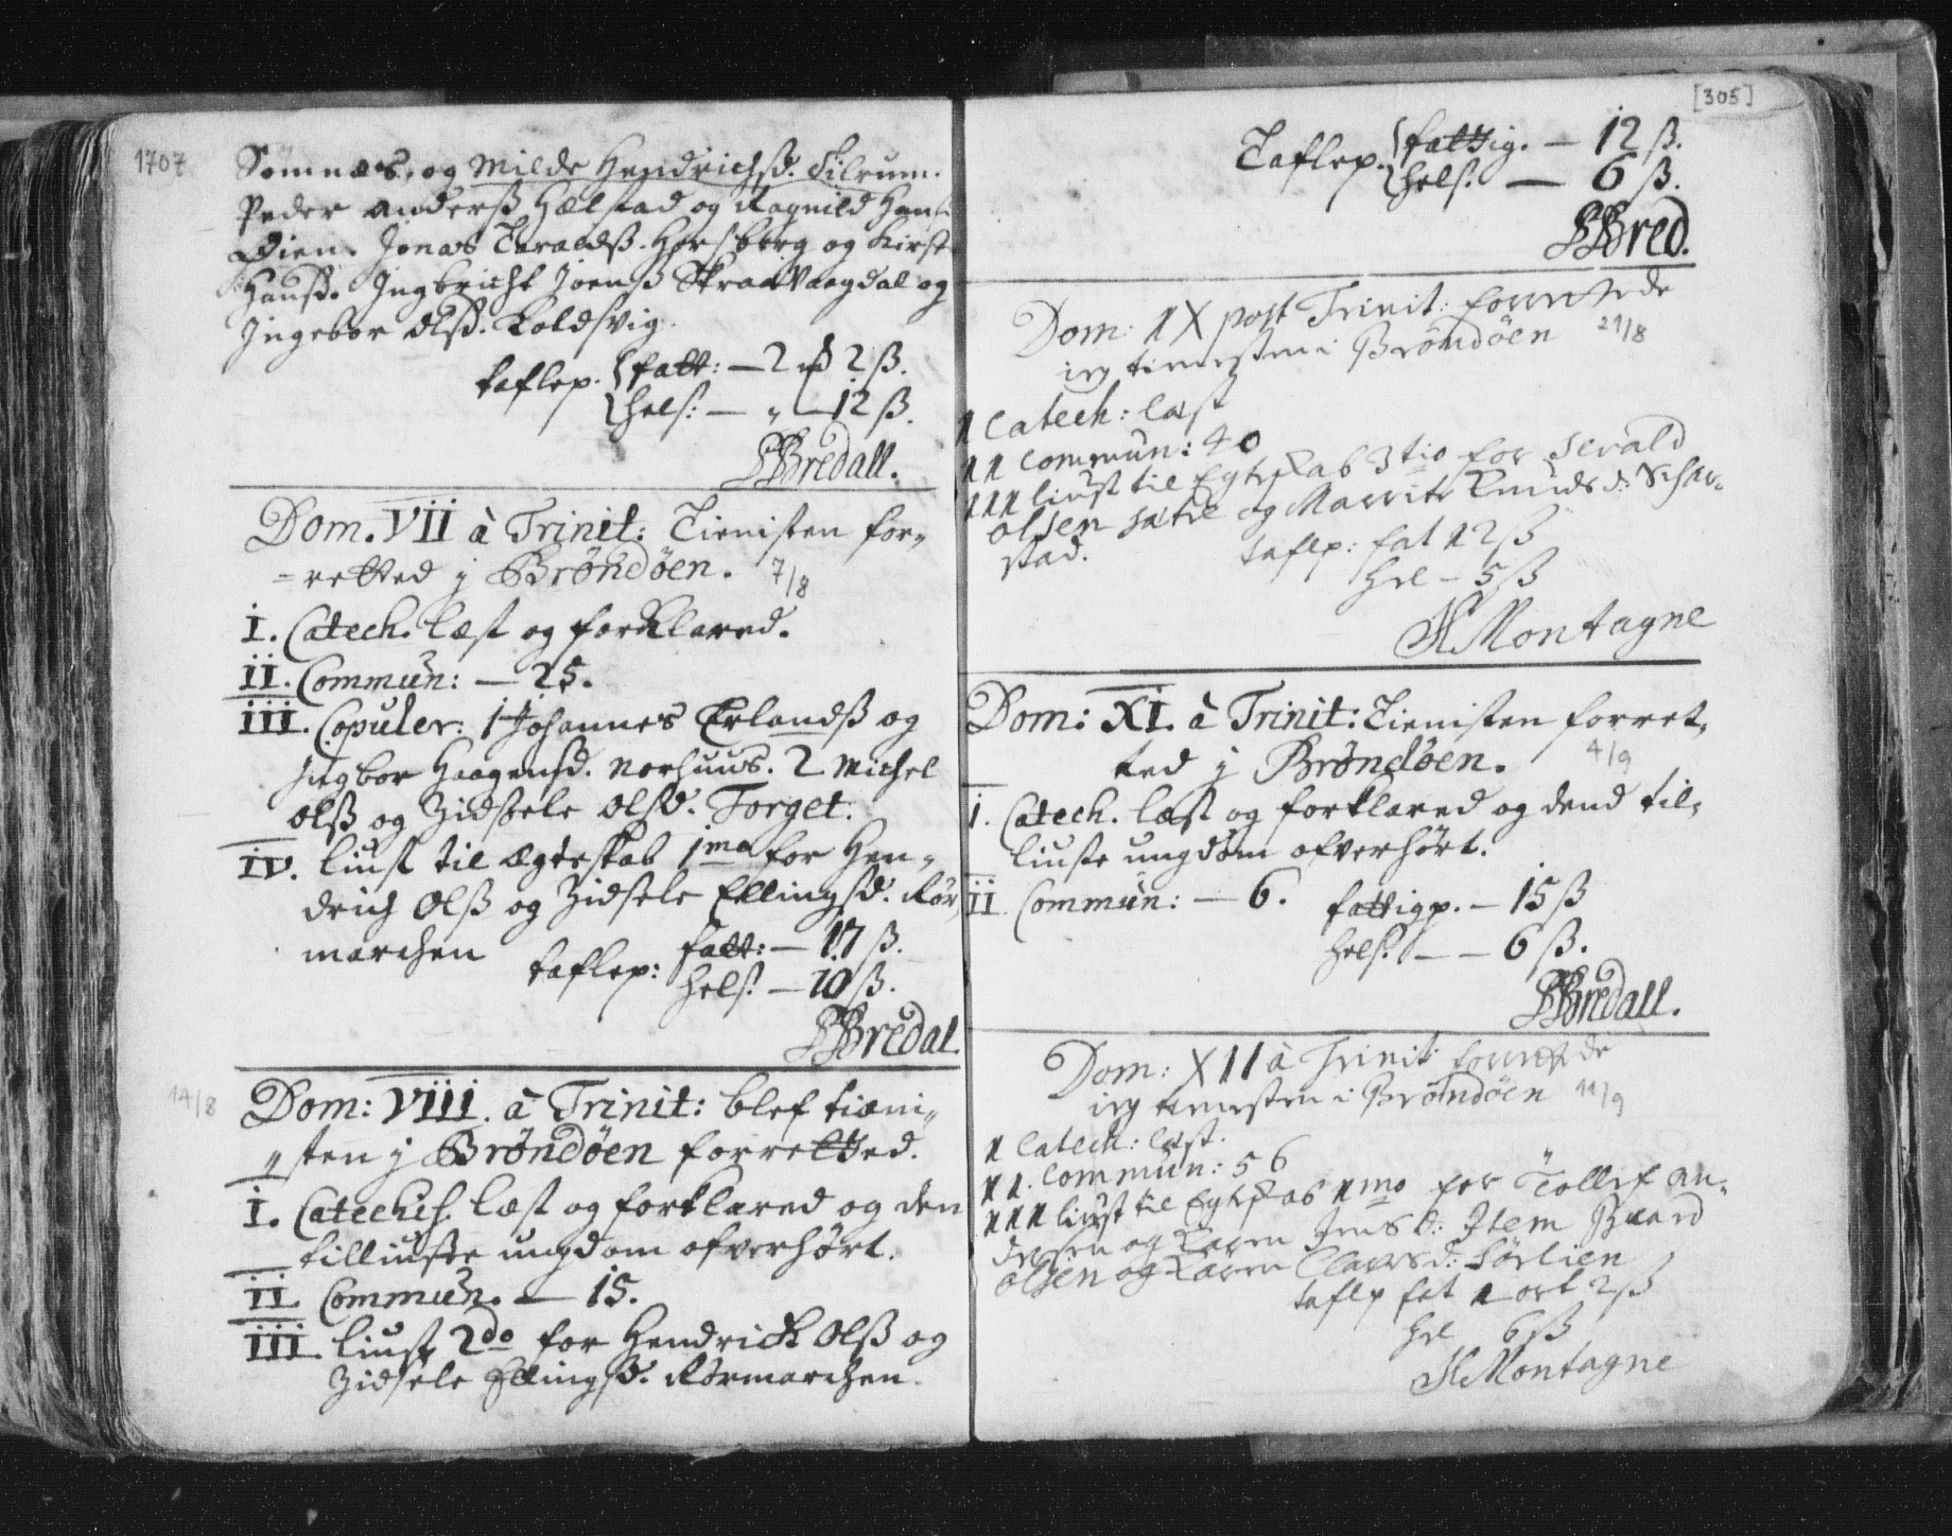 1707
Sømnæs, og Milde Hendrichsd. Silrum.
Peder Anderss Hælstad og Ragnild Hans
Dien. Jonas Taraldss. Horsberg og Kirst
Hanss. Ingbricht Joenss Skraa Vaagdal og
Ingebor Olsd. Koldsvig.
taflep. fatt: — 2 2 ß.
hels: — „ — 12 ß.
Bredall.
Dom. VII à Trinit: Tienisten for„
=retted j Brøndøen. 7/8
I. Catech. læst og forklared.
II. Commun: — 25.
III. Copuler: 1 Johannes Erlandss og
Ingbor Haagensd. Norhuus. 2 Michel
Olss og Zidsele Olsd. Torget.
IV. liust til Ægteskab 1mo for Hen„
drich Olss og Zidsele Ellingsd. Rør
marchen
taflep: fatt: — 17 ß.
hels: — 10 ß.
Bredal.
14/8
Dom: VIII. à Trinit: blef tieni„
„sten j Brøndøen forretted.
I. Catechis. læst og forklared og den
tilliuste ungdom ofverhørt.
II. Commun. — 15.
III. liust 2do for Hendrich Olss og
Zidsele Ellingsd. Rørmarchen.
[305]
Taflep. fattig. — 12 ß.
hels: — 6 ß.
Bred.
Dom: IX post Trinit: forrettede
ieg tienisten i Brøndøen 21/8
I Catech: læst
II Commun: 40
III liust til Egteskab 3tio for Jerald
Olsen Sætre og Marrite Knudsd: Schar„
stad.
taflp: fat 12 ß
hel — 5 ß
Montagne
Dom: XI. à Trinit: Tienisten forret„
ted j Brøndøen. 4/9
I. Catech. læst og forklared og dend til„
liuste ungdom ofverhørt.
II. Commun: — 6. fattigp. — 15 ß
hels: — — 6 ß.
Bredall.
Dom: XII à Trinit: forrettede
ieg tienesten i Brøndøen 11/9
I Catech: læst.
II. Commun: 56
III liust til Egteskab 1mo for Tollef An„
dersen og Karen Jensd: Item Baard
Olsen og Karen Clausd: Sørlien
taflp fat 1 ort 2 ß
hel 6 ß
Montagne